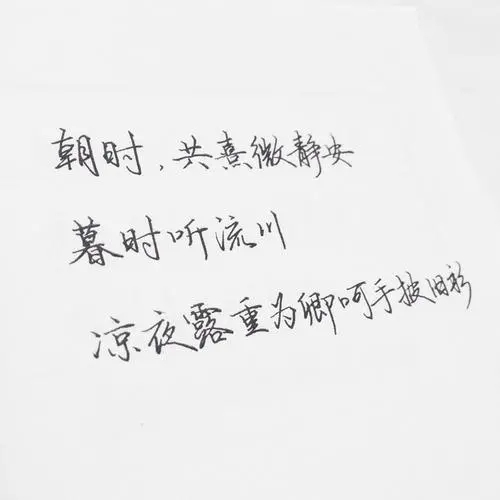 朝时，共熹微静安
暮时听流川
凉夜露重为卿呵手披旧衫